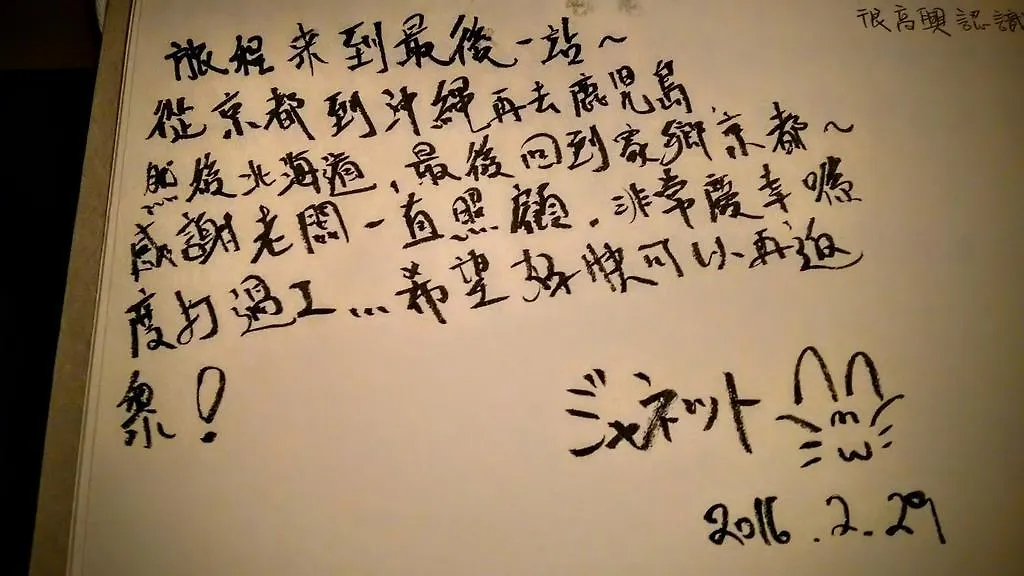 很高興認識
旅程來到最後一站～
從京都到沖縄再去鹿児島
然後北海道，最後回到家鄉京都～
感謝老闆一直照顧，非常慶幸喺
度打過工...希望好快可以再返
嚟！
ジャネット
2016.2.29